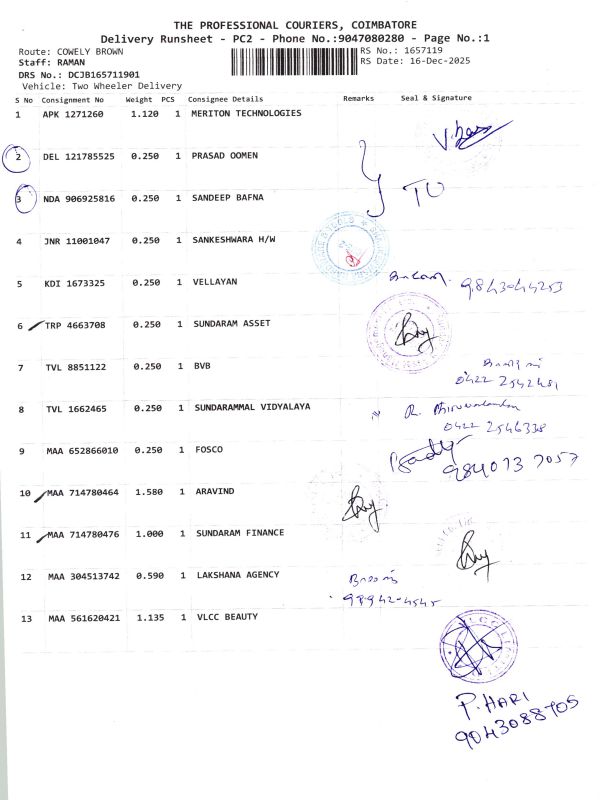 THE PROFESSIONAL COURIERS, COIMBATORE
Delivery Runsheet - PC2 - Phone No.:9047080280 - Page No.:1
Route: COWELY BROWN RS No.: 1657119
Staff: RAMAN RS Date: 16-Dec-2025
DRS No.: DCJB165711901
Vehicle: Two Wheeler Delivery
S No Consignment No Weight PCS Consignee Details Remarks Seal & Signature
1 APK 1271260 1.120 1 MERITON TECHNOLOGIES
2 DEL 121785525 0.250 1 PRASAD OOMEN
3 NDA 906925816 0.250 1 SANDEEP BAFNA TO
4 JNR 11001047 0.250 1 SANKESHWARA H/W
5 KDI 1673325 0.250 1 VELLAYAN
6 TRP 4663708 0.250 1 SUNDARAM ASSET
7 TVL 8851122 0.250 1 BVB
0422 2542481
8 TVL 1662465 0.250 1 SUNDARAMMAL VIDYALAYA R.
0422 2546338
9 MAA 652866010 0.250 1 FOSCO
984073 7057
10 MAA 714780464 1.580 1 ARAVIND
11 MAA 714780476 1.000 1 SUNDARAM FINANCE
12 MAA 304513742 0.590 1 LAKSHANA AGENCY
13 MAA 561620421 1.135 1 VLCC BEAUTY
P. HARI
9043088705